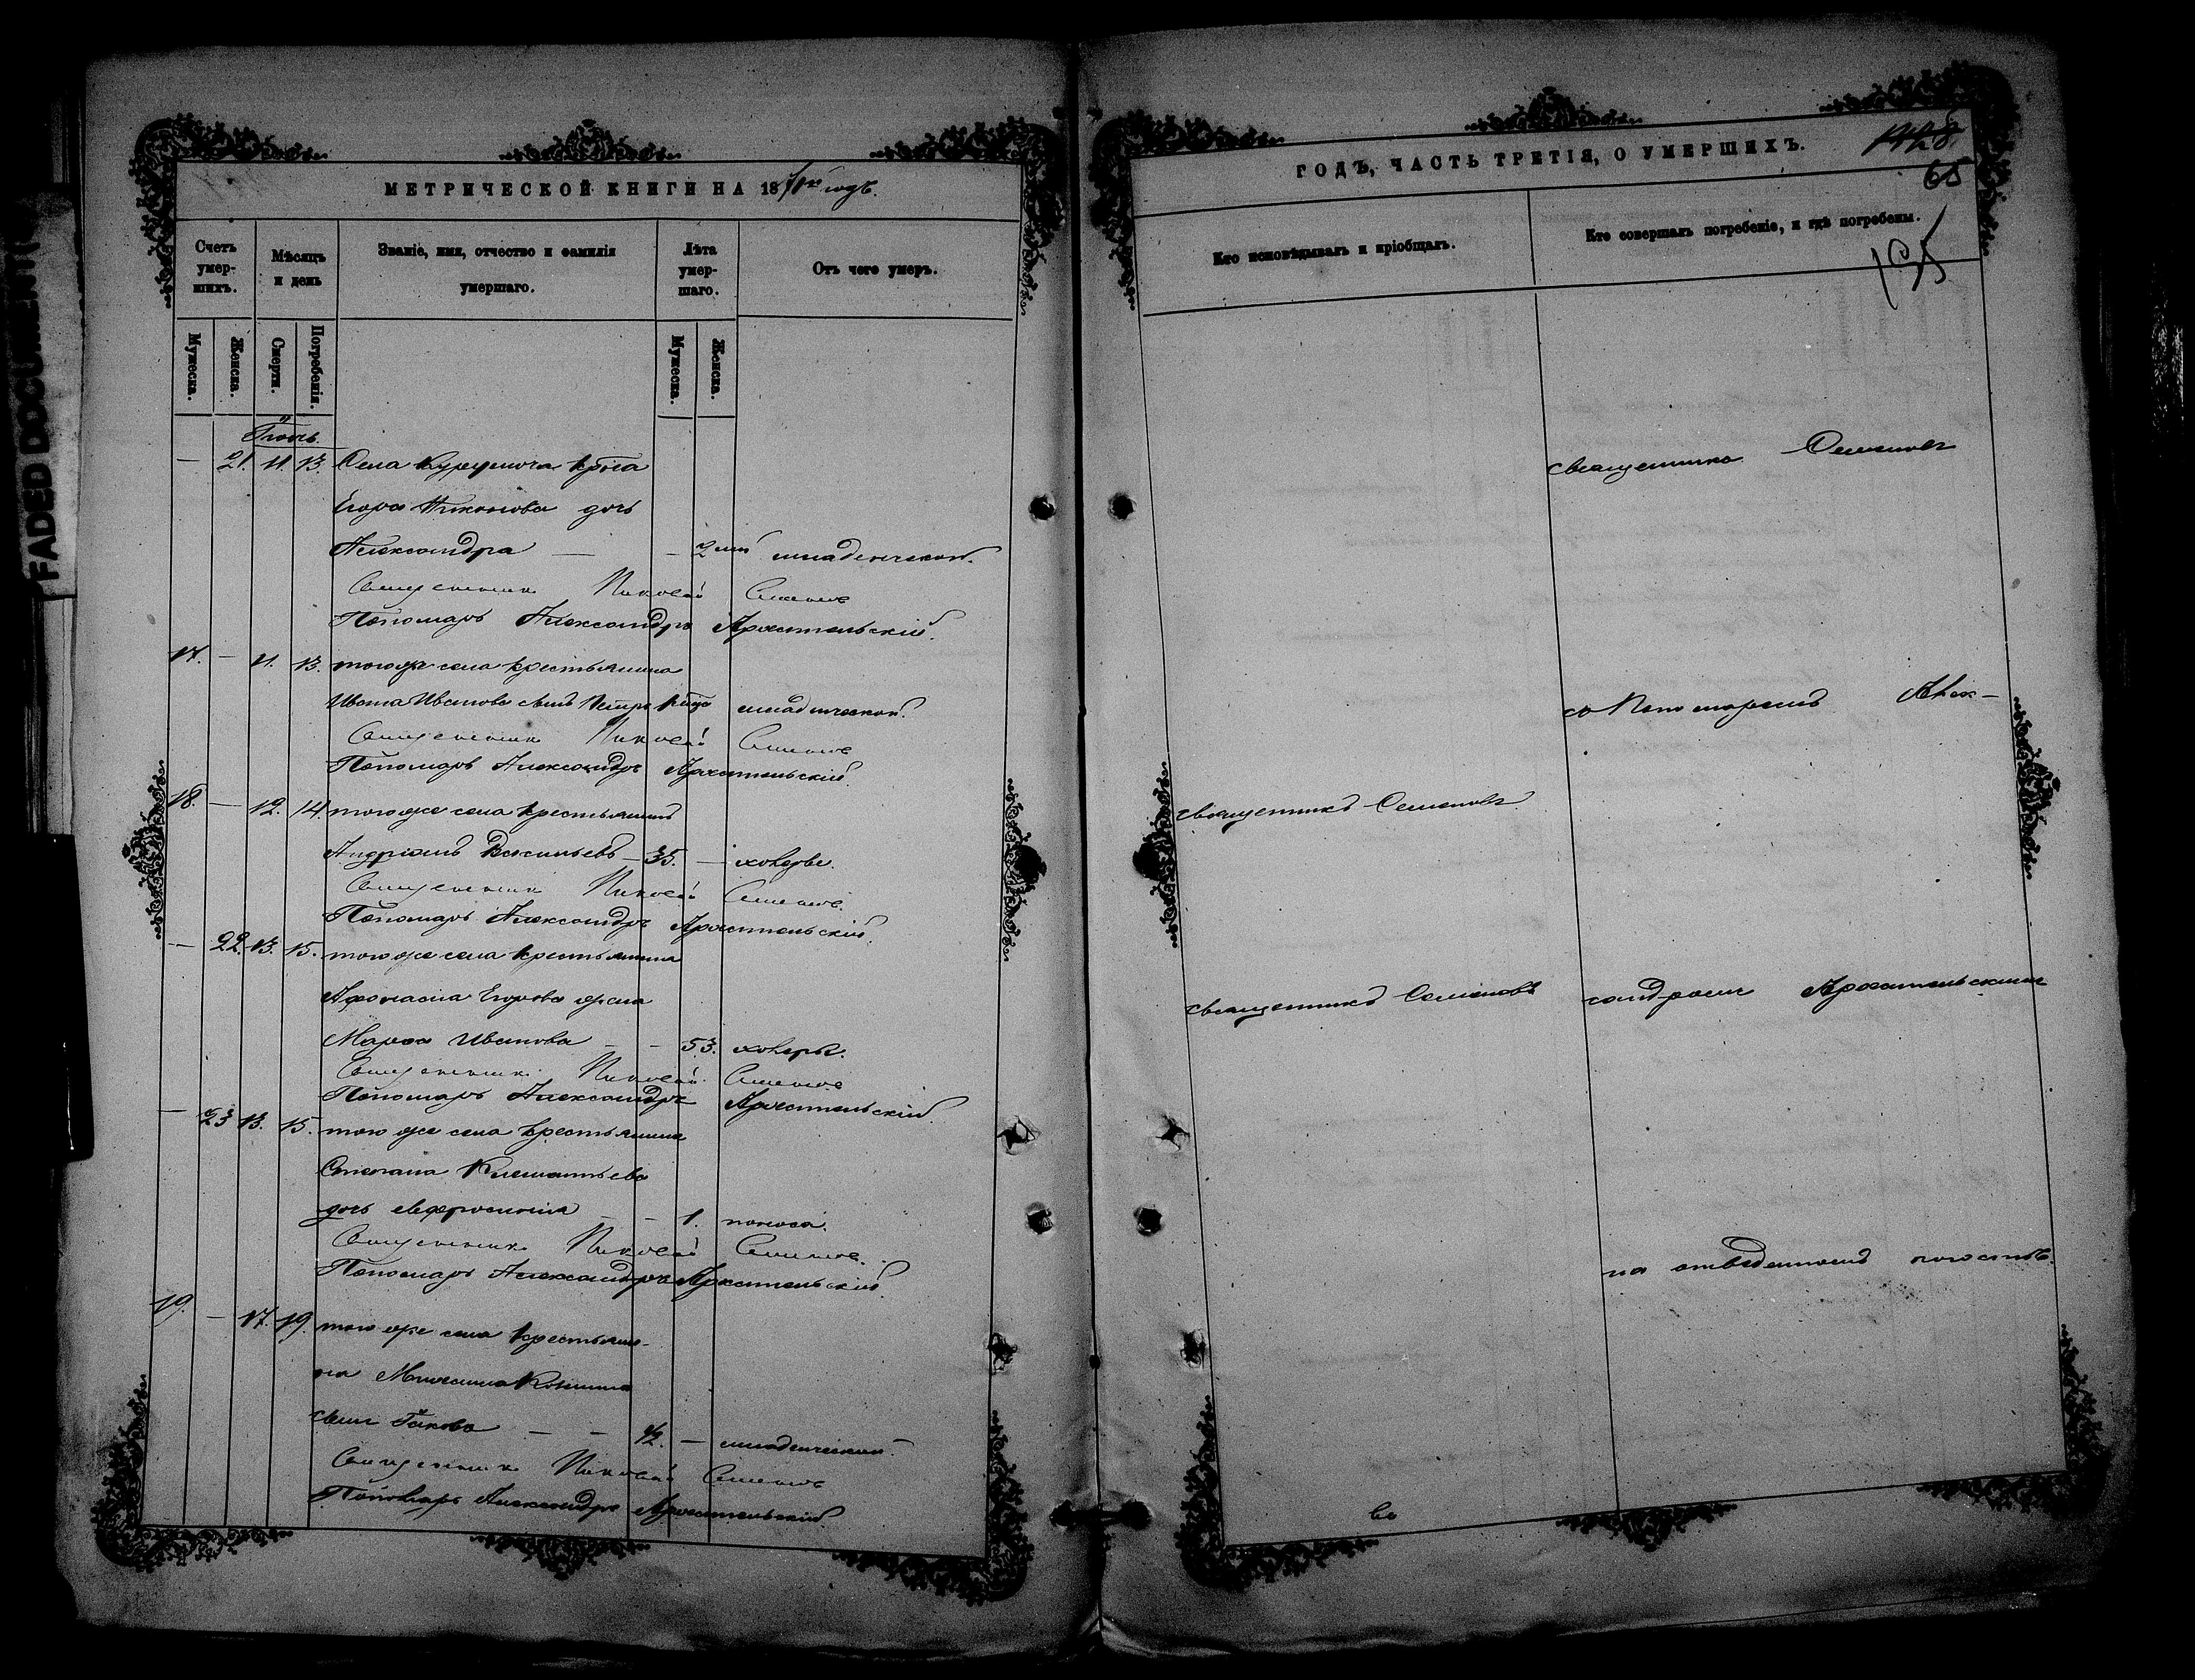 FADED DOCUMENT
МЕТРИЧЕСКОЙ КНИГИ НА 1871й годъ.
Счетъ умер-шихъ.
Мѣсяцъ и день
Званіе, имя, отчество и фамилія умершаго.
Лѣта умер-шаго.
Отъ чего умеръ.
Мужеска.
Женска.
Смерти.
Погребенія.
Мужеска.
Женска.
Іюнь.
— 21. 11. 13. Села крта
Егора Никонова дочь
Александра — — 2 младенческой.
Священникъ Николай Семеновъ
Пономарь Александръ Архангельскій.
17. — 11. 13. того же села крестьянина
Ивана Иванова сынъ Петръ младенческой.
Священникъ Николай Семеновъ
Пономарь Александръ Архангельскій.
18. — 12. 14. того же села крестьянинъ
Андріанъ Васильевъ — 35. — холеры.
Священникъ Николай Семеновъ.
Пономарь Александръ Архангельскій.
— 22. 13. 15. того же села крестьянина
Афонасія Егорова жена
Марѳа Иванова — — 53. холеры.
Священникъ Николай Семеновъ
Пономарь Александръ Архангельскій
— 23 13. 15. того же села крестьянина
Степана Клементьева
дочь Евфросинія — — 1. поноса.
Священникъ Николай Семеновъ.
Пономарь Александръ Архангельскій.
19. — 17. 19. того же села крестьяни-
на
сынъ Іаковъ — — 1/2. — младенческой.
Священникъ Николай Семеновъ
Пономарь Александръ Архангельскій.
ГОДЪ, ЧАСТЬ ТРЕТІЯ, О УМЕРШИХЪ.
65
195
Кто исповѣдывалъ и пріобщалъ.
Кто совершалъ погребеніе, и гдѣ погребены.
священникъ Семеновъ
съ Пономаремъ Алек-
священникъ Семеновъ
священникъ Семеновъ
сандромъ Архангельскимъ
на отведенномъ погостѣ.